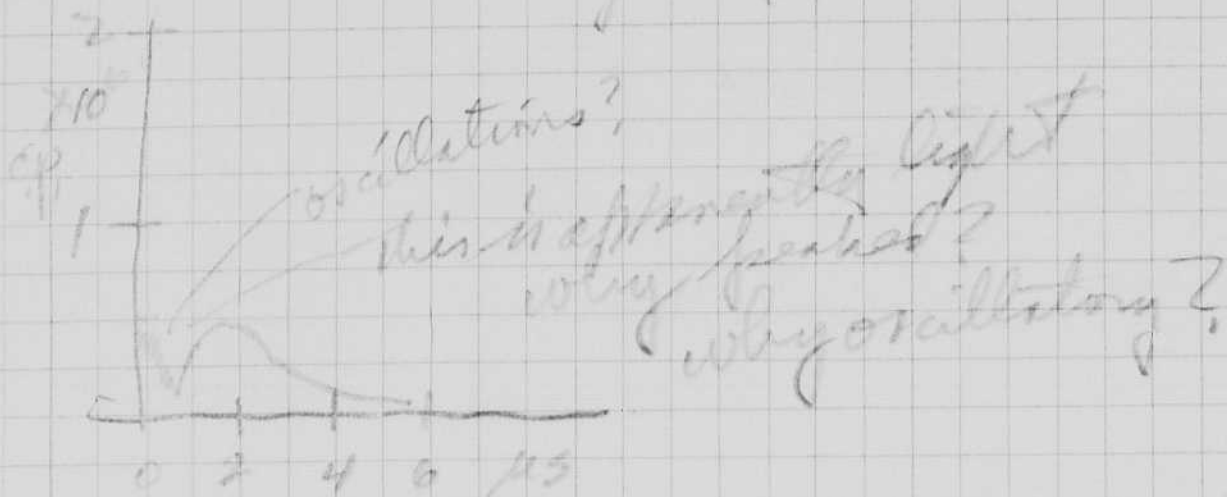 2
x10⁶
cp
1
oscillations?
this is apparently light
why peaked?
why oscillatory?
0 2 4 6 μs